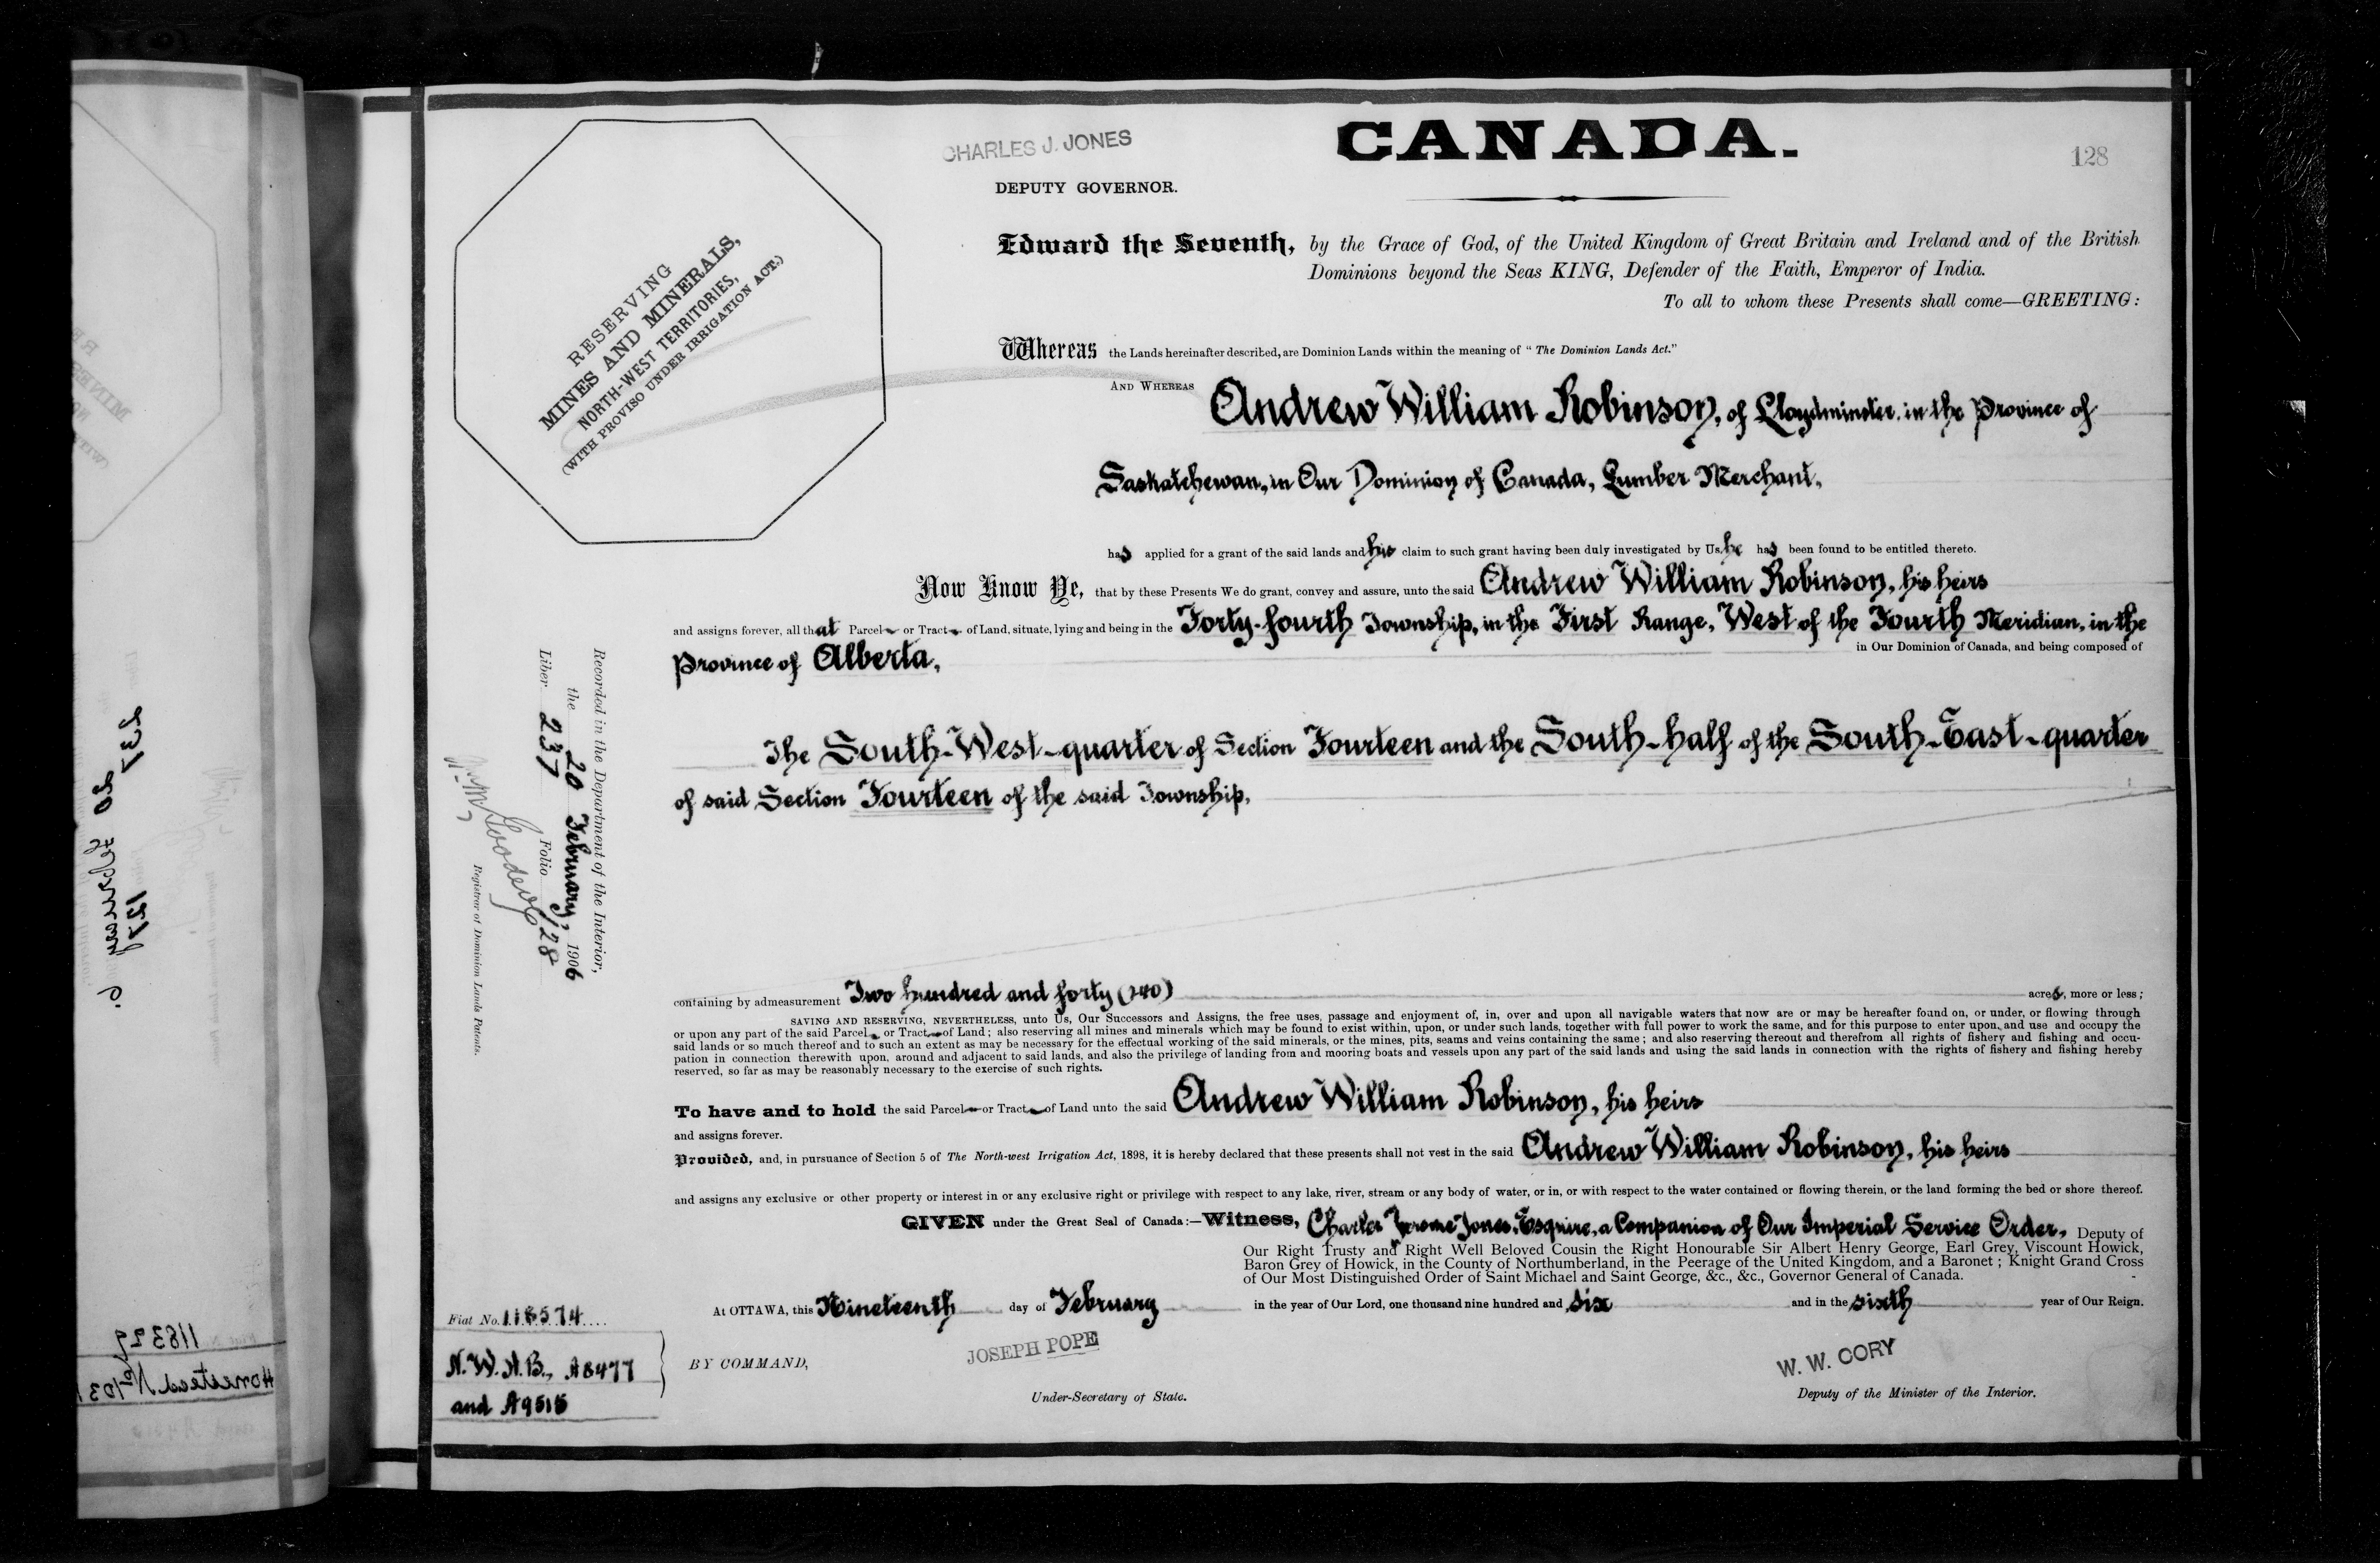 CHARLES J. JONES
DEPUTY GOVERNOR.
CANADA.
128
RESERVING
MINES AND MINERALS,
NORTH-WEST TERRITORIES,
(WITH PROVISO UNDER IRRIGATION ACT.)
Edward the Seventh, by the Grace of God, of the United Kingdom of Great Britain and Ireland and of the British
Dominions beyond the Seas KING, Defender of the Faith, Emperor of India.
To all to whom these Presents shall come—GREETING:
Whereas the Lands hereinafter described, are Dominion Lands within the meaning of "The Dominion Lands Act."
AND WHEREAS Andrew William Robinson, of Lloydminster, in the Province of
Saskatchewan, in Our Dominion of Canada, Lumber Merchant,
has applied for a grant of the said lands and his claim to such grant having been duly investigated by Us, he has been found to be entitled thereto.
Now Know Ye, that by these Presents We do grant, convey and assure, unto the said Andrew William Robinson, his heirs
and assigns forever, all that Parcel or Tract of Land, situate, lying and being in the Forty-fourth Township, in the First Range, West of the Fourth Meridian, in the
Province of Alberta, in Our Dominion of Canada, and being composed of
The South-West-quarter of Section Fourteen and the South-half of the South-East-quarter
of said Section Fourteen of the said Township,
containing by admeasurement Two hundred and forty (240) acres, more or less;
SAVING AND RESERVING, NEVERTHELESS, unto Us, Our Successors and Assigns, the free uses, passage and enjoyment of, in, over and upon all navigable waters that now are or may be hereafter found on, or under, or flowing through
or upon any part of the said Parcel or Tract of Land; also reserving all mines and minerals which may be found to exist within, upon, or under such lands, together with full power to work the same, and for this purpose to enter upon, and use and occupy the
said lands or so much thereof and to such an extent as may be necessary for the effectual working of the said minerals, or the mines, pits, seams and veins containing the same; and also reserving thereout and therefrom all rights of fishery and fishing and occu-
pation in connection therewith upon, around and adjacent to said lands, and also the privilege of landing from and mooring boats and vessels upon any part of the said lands and using the said lands in connection with the rights of fishery and fishing hereby
reserved, so far as may be reasonably necessary to the exercise of such rights.
To have and to hold the said Parcel or Tract of Land unto the said Andrew William Robinson, his heirs
and assigns forever.
Provided, and, in pursuance of Section 5 of The North-west Irrigation Act, 1898, it is hereby declared that these presents shall not vest in the said Andrew William Robinson, his heirs
and assigns any exclusive or other property or interest in or any exclusive right or privilege with respect to any lake, river, stream or any body of water, or in, or with respect to the water contained or flowing therein, or the land forming the bed or shore thereof.
GIVEN under the Great Seal of Canada:—Witness, Charles Jerome Jones, Esquire, a Companion of Our Imperial Service Order, Deputy of
Our Right Trusty and Right Well Beloved Cousin the Right Honourable Sir Albert Henry George, Earl Grey, Viscount Howick,
Baron Grey of Howick, in the County of Northumberland, in the Peerage of the United Kingdom, and a Baronet; Knight Grand Cross
of Our Most Distinguished Order of Saint Michael and Saint George, &c., &c., Governor General of Canada.
At OTTAWA, this Nineteenth day of February in the year of Our Lord, one thousand nine hundred and six and in the sixth year of Our Reign.
BY COMMAND,
JOSEPH POPE
Under-Secretary of State.
W. W. CORY
Deputy of the Minister of the Interior.
Recorded in the Department of the Interior,
the 20 February, 1906
Liber 237 Folio 128
Registrar of Dominion Lands Patents.
Fiat No. 118574
N.W.H.B., A8477
and A9515
237 127
20 February 6
118329
Homestead No 1031